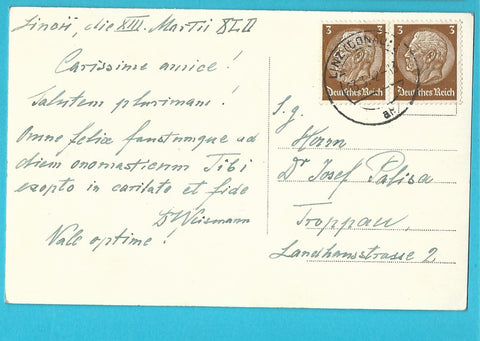 die XIII. Martii
Carissime amice!
Salutem plurimam!
Omne felix faustumque ad
diem onomasticum Tibi
exopto in caritate et fide
Dr Weismann
Vale optime!
3 3
Deutsches Reich Deutsches Reich
LINZ (DONAU)
S. g.
Herrn
Dr Josef Palisa
Troppau.
Landhausstrasse 2